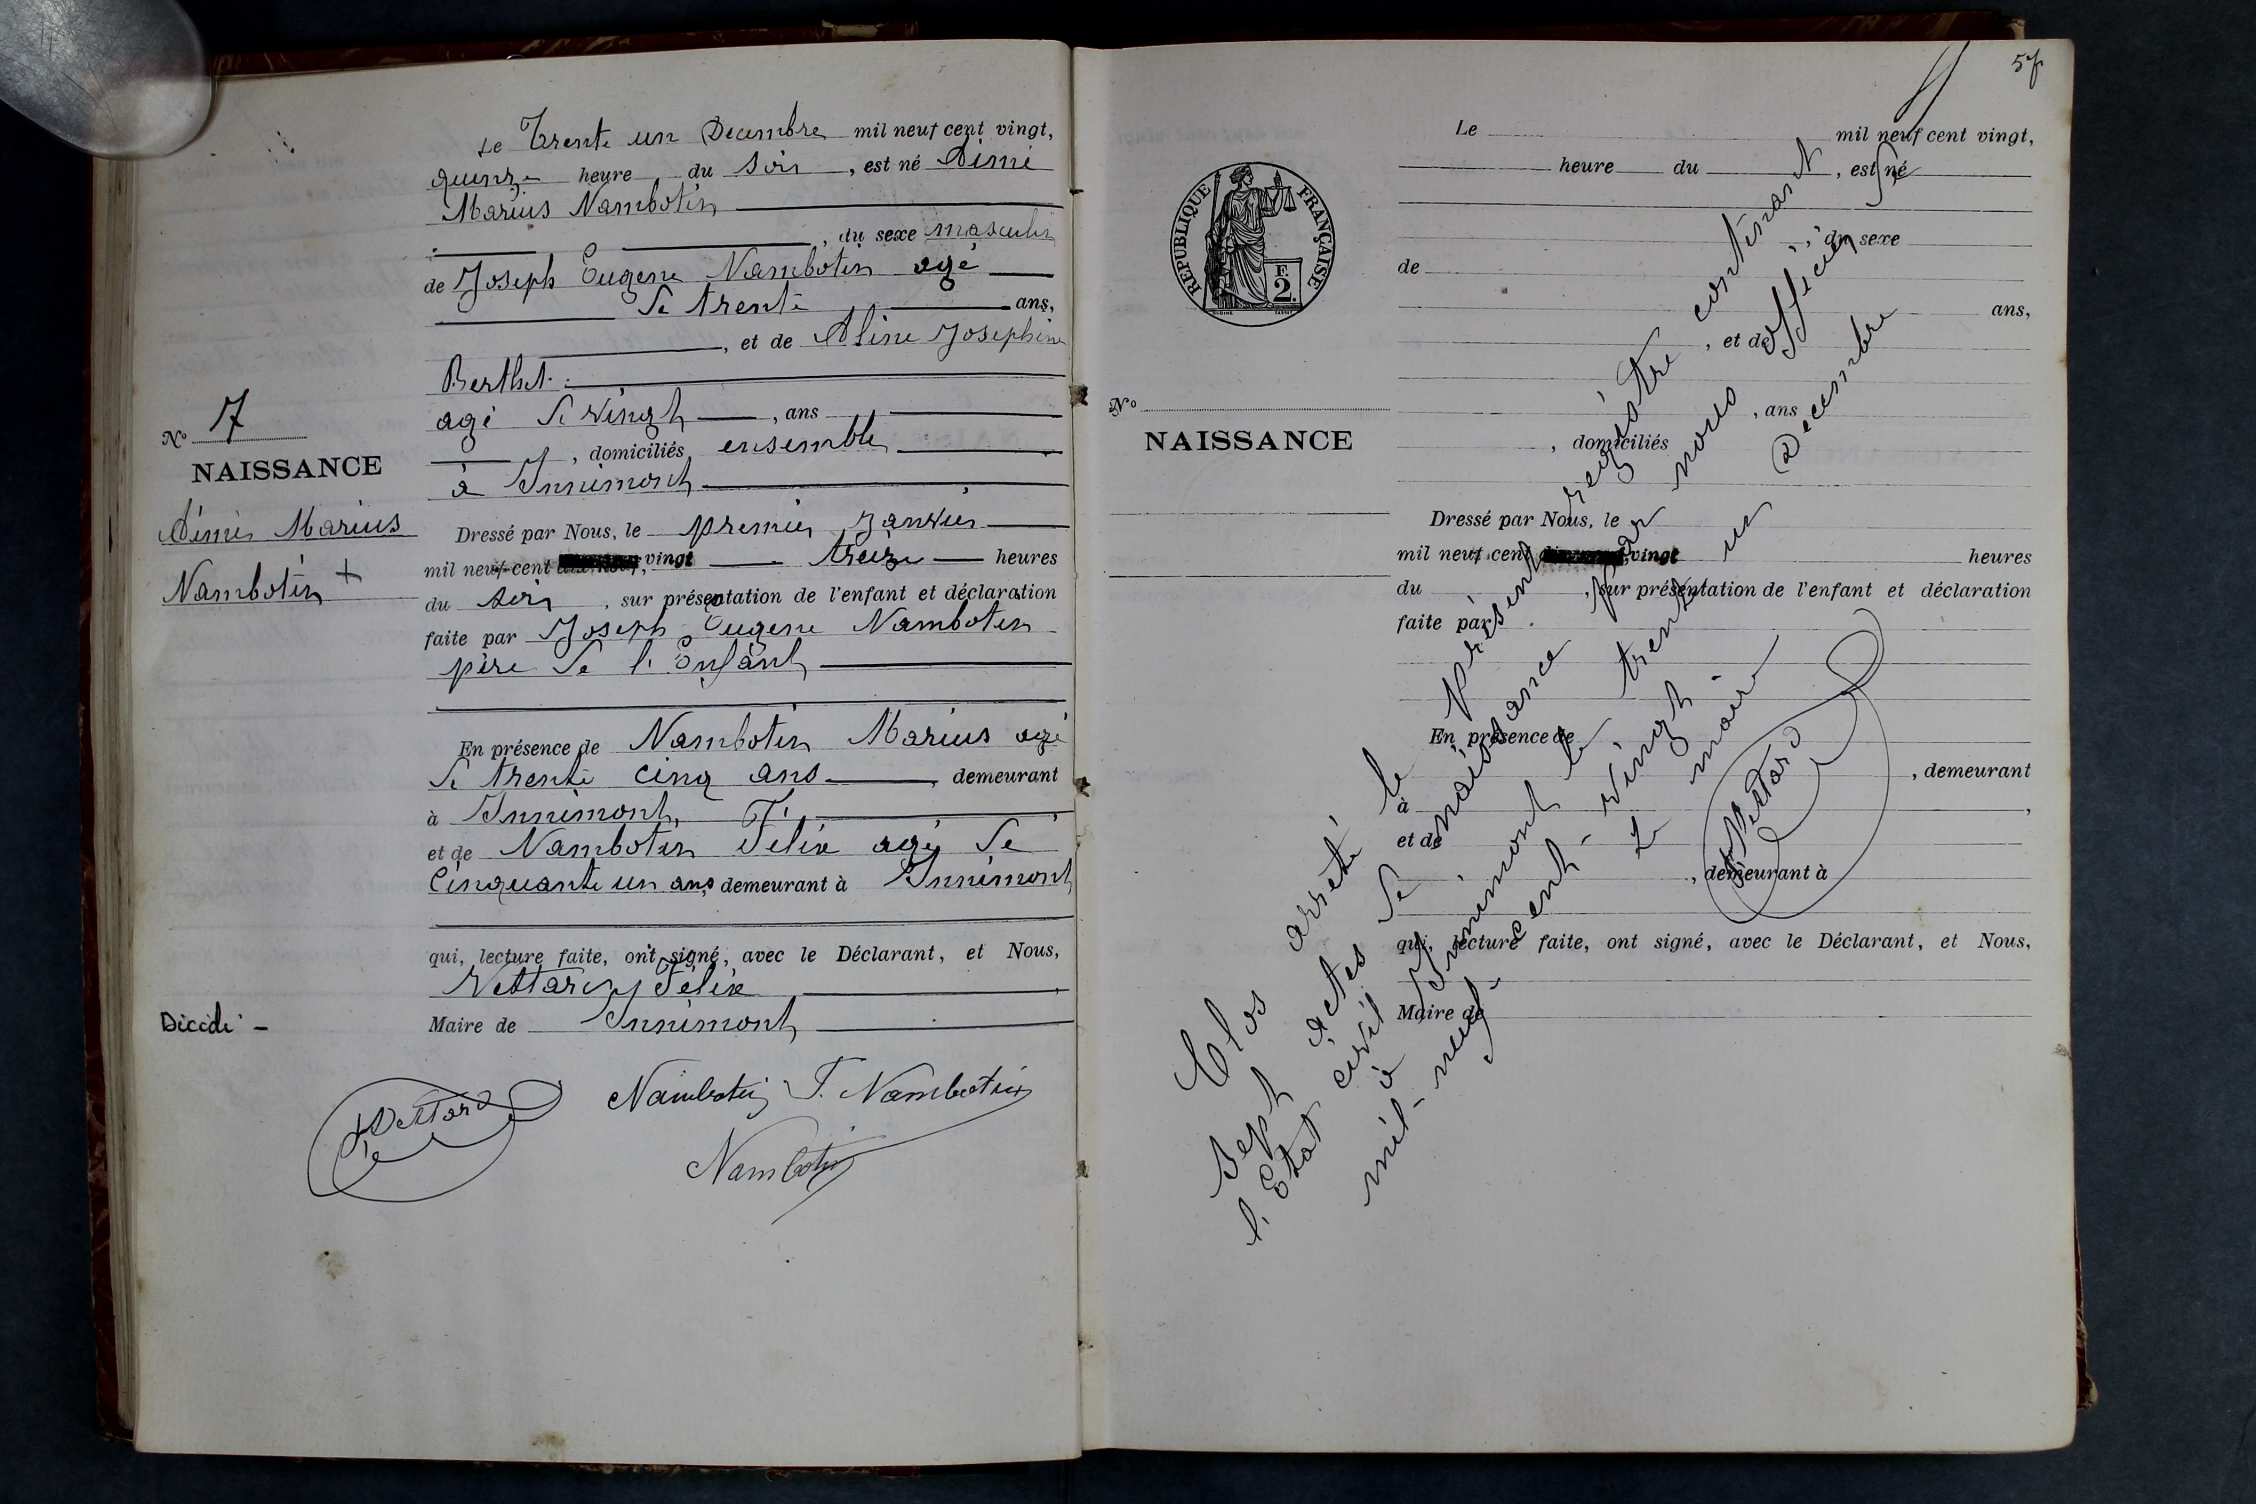 Le Trente un Decembre mil neuf cent vingt,
quinze heure du soir, est né Aimé
Marius Nambotin
, du sexe masculin
de Joseph Eugene Nambotin agé
de trente ans,
, et de Aline Josephine
Berthet.
agé de vingt, ans
, domiciliés ensemble
à Innimont
No 7
NAISSANCE
Aimé Marius
Nambotin +
Dressé par Nous, le premier Janvier
mil neuf cent vingt treize heures
du soir, sur présentation de l'enfant et déclaration
faite par Joseph Eugene Nambotin
père de l'Enfant
En présence de Nambotin Marius agé
de trente cinq ans, demeurant
à Innimont,
et de Nambotin Félix agé de
cinquante un ans, demeurant à Innimont
qui, lecture faite, ont signé, avec le Déclarant, et Nous,
Vettard Félix
Décidé -
Maire de Innimont
Vettard
Nambotin F. Nambotin
Nambotin
57
REPUBLIQUE FRANÇAISE
F. 2.
Le mil neuf cent vingt,
heure du , est né
, du sexe
de
ans,
, et de
, ans
No
NAISSANCE
, domiciliés
Dressé par Nous, le
mil neuf cent vingt heures
du , sur présentation de l'enfant et déclaration
faite par
En présence de
, demeurant
à ,
et de
, demeurant à
qui, lecture faite, ont signé, avec le Déclarant, et Nous,
Maire de
Clos arrêté le présent registre contenant
sept actes de naissance par nous officier de
l'Etat civil
à Innimont le trente un Decembre
mil-neuf-cent-vingt.
Le maire
Vettard